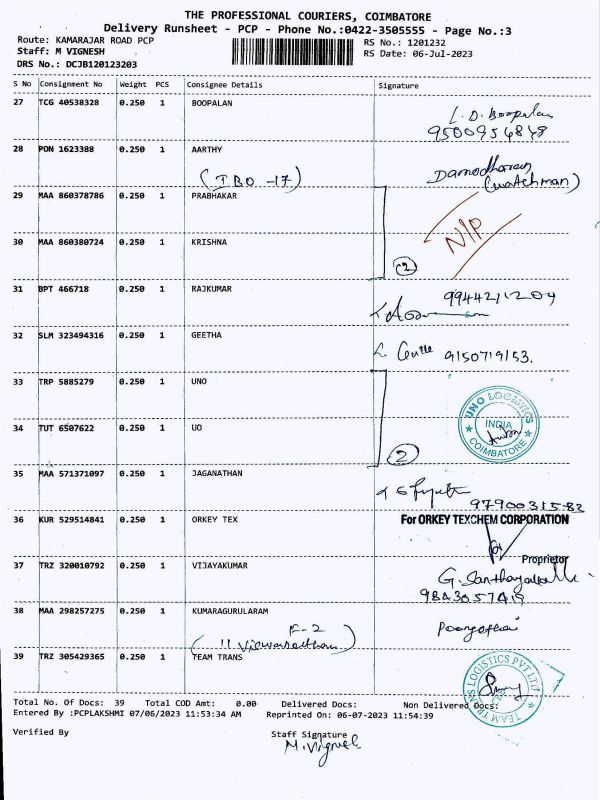 THE PROFESSIONAL COURIERS, COIMBATORE
Delivery Runsheet - PCP - Phone No.:0422-3505555 - Page No.:3
Route: KAMARAJAR ROAD PCP
RS No.: 1201232
Staff: M VIGNESH
RS Date: 06-Jul-2023
DRS No.: DCJB120123203
S No Consignment No Weight PCS Consignee Details Signature
27 TCG 40538328 0.250 1 BOOPALAN
L. D. Boopalan
9500954848
28 PDN 1623388 0.250 1 AARTHY
Damodharan
(IBO -17) (watchman)
29 MAA 860378786 0.250 1 PRABHAKAR
N/P
30 MAA 860380724 0.250 1 KRISHNA
(2)
31 BPT 466718 0.250 1 RAJKUMAR
9944211204
32 SLM 323494316 0.250 1 GEETHA
9150719153.
33 TRP 5885279 0.250 1 UNO
UNO LOGISTICS
INDIA
COIMBATORE
34 TUT 6507622 0.250 1 UO
2
35 MAA 571371097 0.250 1 JAGANATHAN
9790031582
36 KUR 529514841 0.250 1 ORKEY TEX
For ORKEY TEXCHEM CORPORATION
Proprietor
37 TRZ 320010792 0.250 1 VIJAYAKUMAR
38 MAA 298257275 0.250 1 KUMARAGURULARAM
F-2
39 TRZ 305429365 0.250 1 TEAM TRANS
TEAM TRANS LOGISTICS PVT LTD
Total No. Of Docs: 39 Total COD Amt: 0.00 Delivered Docs: Non Delivered Docs:
Entered By :PCPLAKSHMI 07/06/2023 11:53:34 AM Reprinted On: 06-07-2023 11:54:39
Verified By Staff Signature
M. Vignesh